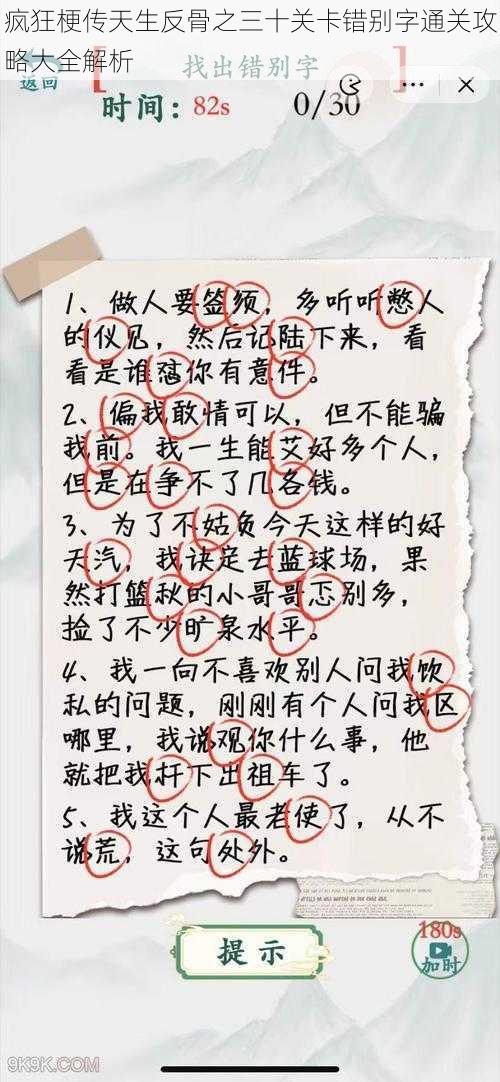 疯狂梗传天生反骨之三十关卡错别字通关攻
略大全解析
返回
[找出错别字]
时间：82s
0/30
1、做人要签须，多听听憋人
的仪见，然后记陆下来，看
看是谁怼你有意件。
2、偏我敢情可以，但不能骗
我前。我一生能艾好多个人，
但是在争不了几各钱。
3、为了不姑负今天这样的好
天汽，我诀定去蓝球场，果
然打篮秋的小哥哥丕别多，
捡了不少旷泉水平。
4、我一向不喜欢别人问我饮
私的问题，刚刚有个人问我区
哪里，我说观你什么事，他
就把我扞下出祖车了。
5、我这个人最老使了，从不
说荒，这句处外。
提示
180s
加时
9K9K.COM